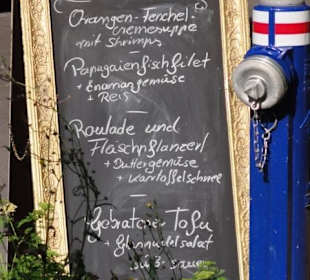 Orangen-Fenchel-
cremesuppe
mit Shrimps
Papageienfischfilet
+ Reis
Roulade und
Fleischpflanzerl
+ Buttergemüse
+ Kartoffelschnee
Gebratener Tofu
+ Glasnudelsalat
süß-sauer